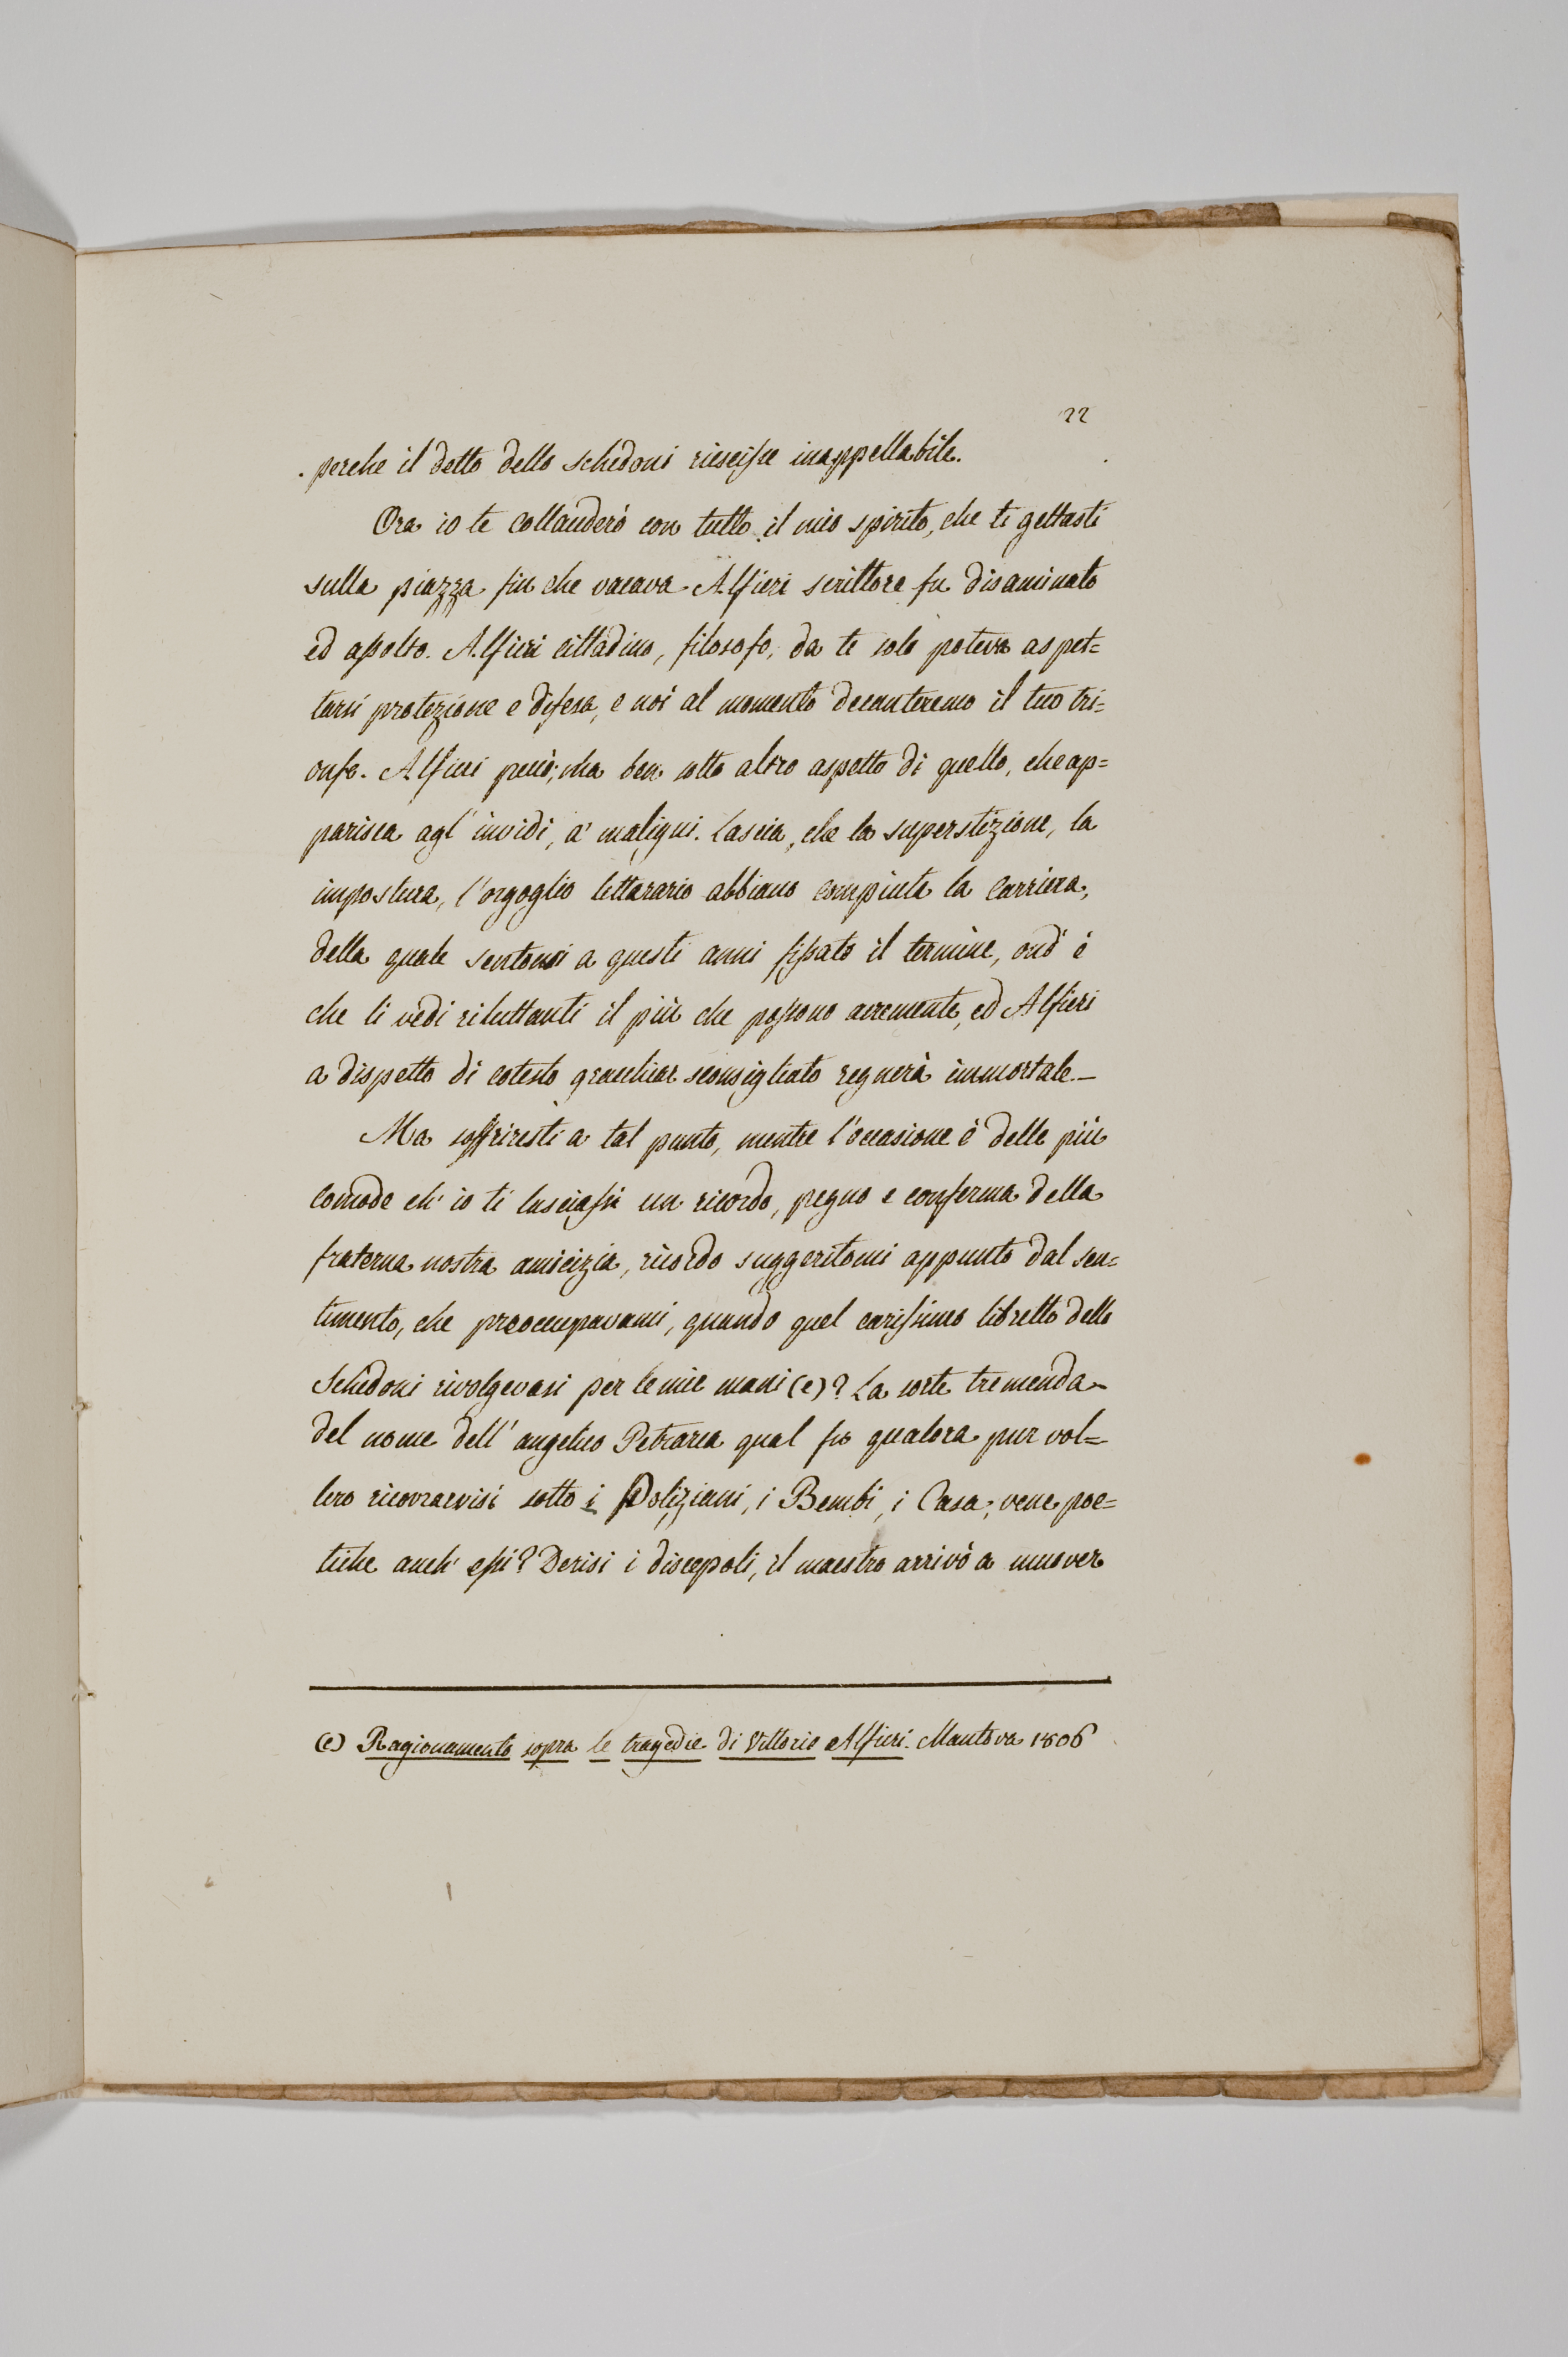 22
perche il detto dello Schedoni riescisse inappellabile.
Ora io te collauderò con tutto il mio spirito, che ti gettasti
sulla piazza fin che vacava. Alfieri scrittore fu disaminato
ed assolto. Alfieri cittadino, filosofo, da te solo poteva aspet=
tarsi protezione e difesa, e noi al momento decanteremo il tuo tri=
onfo. Alfieri peccò; ma ben sotto altro aspetto di quello, che ap=
parisca agl' invidi, a' maligni. Lascia, che la superstizione, la
impostura, l'orgoglio letterario abbiano compiuta la carriera,
della quale sentonsi a questi anni fissato il termine, ond' è
che li vedi riluttanti il più che possono acremente, ed Alfieri
a dispetto di cotesto gracchiar sconsigliato regnerà immortale._
Ma soffriresti a tal punto, mentre l'occasione è delle più
comode ch' io ti lasciassi un ricordo, pegno e conferma della
fraterna nostra amicizia, ricordo suggeritomi appunto dal sen=
timento, che preoccupavami, quando quel carissimo libretto dello
Schedoni rivolgevasi per le mie mani (e)? La sorte tremenda
del nome dell' angelico Petrarca qual fu qualora pur vol=
lero ricovrarvisi sotto i Poliziani, i Bembi, i Casa; vene poe=
tiche anch' essi? Derisi i discepoli, il maestro arrivò a muover
(e) Ragionamento sopra le tragedie di Vittorio Alfieri. Mantova 1806